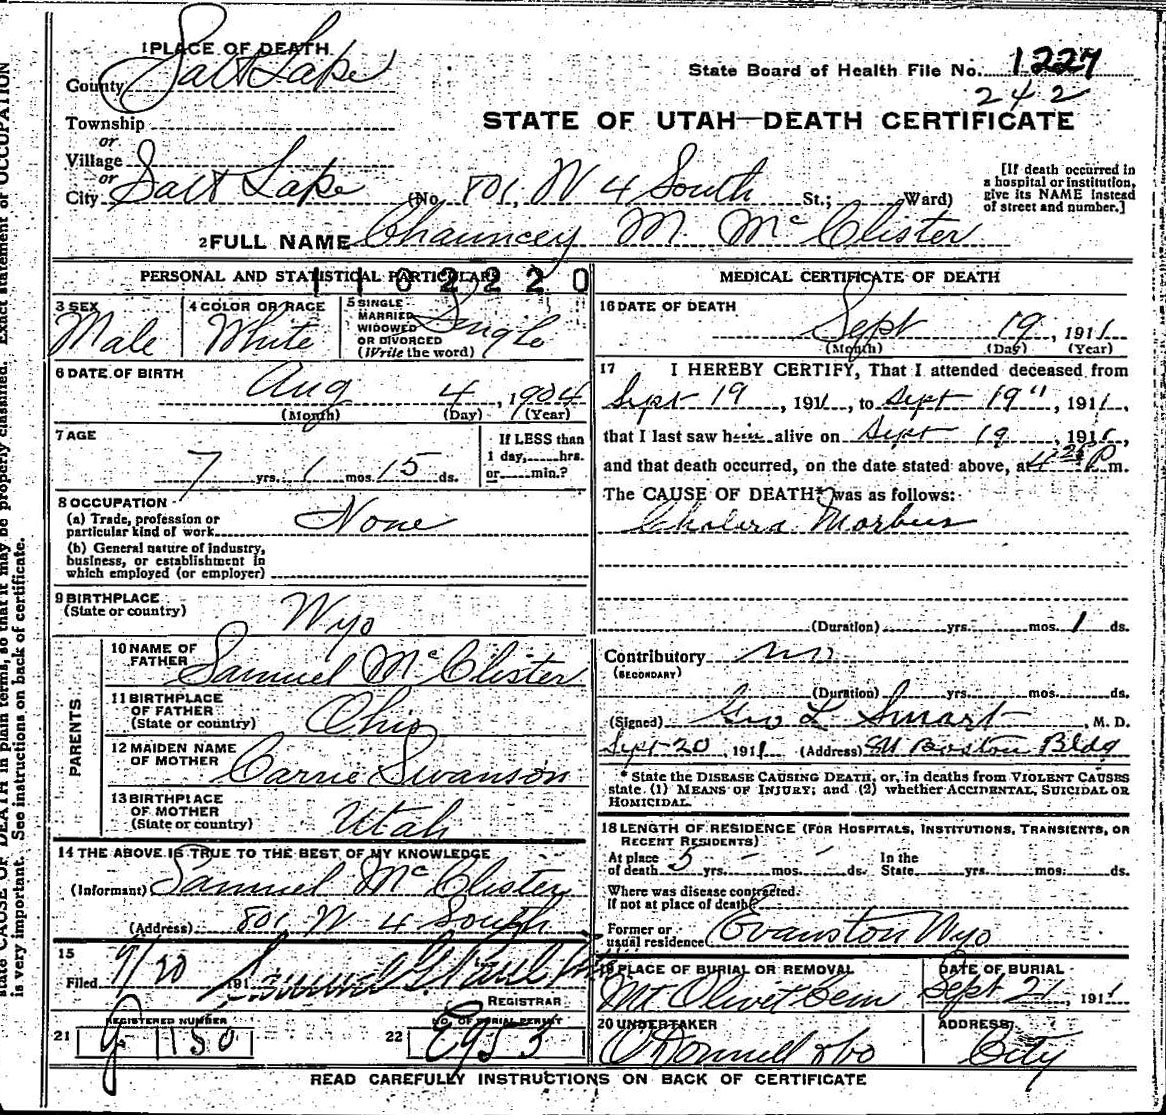 state CAUSE OF DEATH in plain terms, so that it may be properly classified. Exact statement of OCCUPATION
is very important. See instructions on back of certificate.
1 PLACE OF DEATH
County Salt Lake
State Board of Health File No. 1227
242
Township
or
Village
or
City Salt Lake (No. 801, W 4 South St.; Ward)
STATE OF UTAH—DEATH CERTIFICATE
[If death occurred in
a hospital or institution,
give its NAME instead
of street and number.]
2 FULL NAME Chauncey M. McClister
PERSONAL AND STATISTICAL PARTICULARS
1102220
3 SEX
Male
4 COLOR OR RACE
White
5 SINGLE
MARRIED
WIDOWED
OR DIVORCED
(Write the word)
Single
6 DATE OF BIRTH
Aug 4, 1904
(Month) (Day) (Year)
7 AGE
7 yrs. 1 mos. 15 ds.
If LESS than
1 day, hrs.
or min.?
8 OCCUPATION
(a) Trade, profession or
particular kind of work
None
(b) General nature of industry,
business, or establishment in
which employed (or employer)
9 BIRTHPLACE
(State or country)
Wyo
PARENTS
10 NAME OF
FATHER
Samuel McClister
11 BIRTHPLACE
OF FATHER
(State or country)
Ohio
12 MAIDEN NAME
OF MOTHER
Carrie Swanson
13 BIRTHPLACE
OF MOTHER
(State or country)
Utah
14 THE ABOVE IS TRUE TO THE BEST OF MY KNOWLEDGE
(Informant) Samuel McClister
(Address) 801 W 4 South
15
Filed 9/20 191 Samuel G. Paul
REGISTRAR
REGISTERED NUMBER
21 150
NO. OF BURIAL PERMIT
22 E953
MEDICAL CERTIFICATE OF DEATH
16 DATE OF DEATH
Sept 19, 1911
(Month) (Day) (Year)
17 I HEREBY CERTIFY, That I attended deceased from
Sept 19, 1911, to Sept 19", 1911,
that I last saw him alive on Sept 19, 1911,
and that death occurred, on the date stated above, at P m.
The CAUSE OF DEATH* was as follows:
Cholera Morbus
(Duration) yrs. mos. 1 ds.
Contributory no
(SECONDARY)
(Duration) yrs. mos. ds.
(Signed) Geo L Smart, M. D.
Sept 20, 1911 (Address) Boston Bldg
* State the DISEASE CAUSING DEATH, or, in deaths from VIOLENT CAUSES
state (1) MEANS OF INJURY; and (2) whether ACCIDENTAL, SUICIDAL OR
HOMICIDAL.
18 LENGTH OF RESIDENCE (FOR HOSPITALS, INSTITUTIONS, TRANSIENTS, OR
RECENT RESIDENTS)
At place
of death 5 yrs. - mos. - ds. In the
State yrs. mos. ds.
Where was disease contracted.
if not at place of death?
Former or
usual residence Evanston Wyo
19 PLACE OF BURIAL OR REMOVAL
Mt Olivet Cem
DATE OF BURIAL
Sept 21, 1911
20 UNDERTAKER
O'Donnell & Co
ADDRESS
City
READ CAREFULLY INSTRUCTIONS ON BACK OF CERTIFICATE